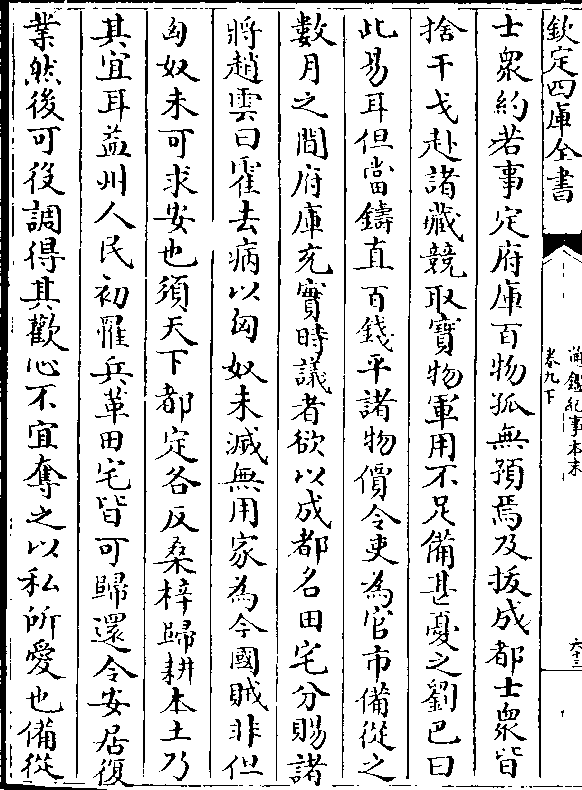 欽定四庫全書
通鑑紀事本末
卷九下
六十三
士衆約若事定府庫百物孤無預焉及拔成都士衆皆
捨干戈赴諸藏競取寶物軍用不足備甚憂之劉巴曰
此易耳但當鑄直百錢平諸物價令吏為官市備從之
數月之間府庫充實時議者欲以成都名田宅分賜諸
將趙雲曰霍去病以匈奴未滅無用家為今國賊非但
匈奴未可求安也須天下都定各反桑梓歸耕本土乃
其宜耳益州人民初罹兵革田宅皆可歸還令安居復
業然後可役調得其歡心不宜奪之以私所愛也備從